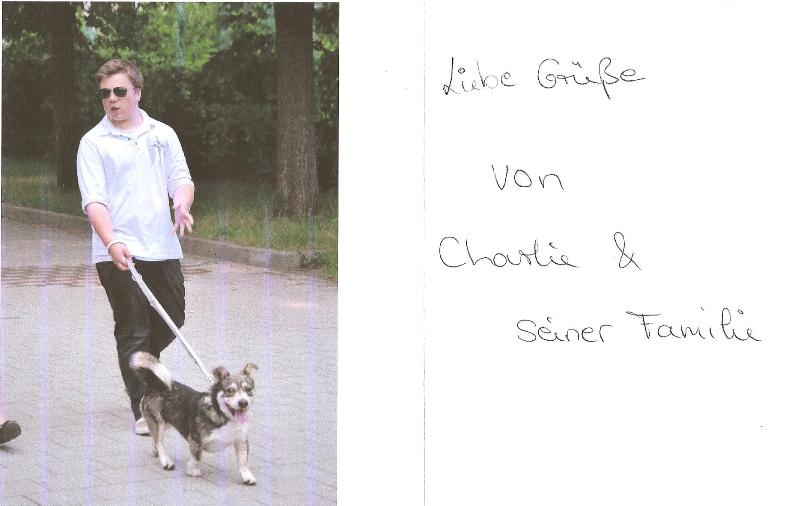 Liebe Grüße
von
Charlie &
seiner Familie